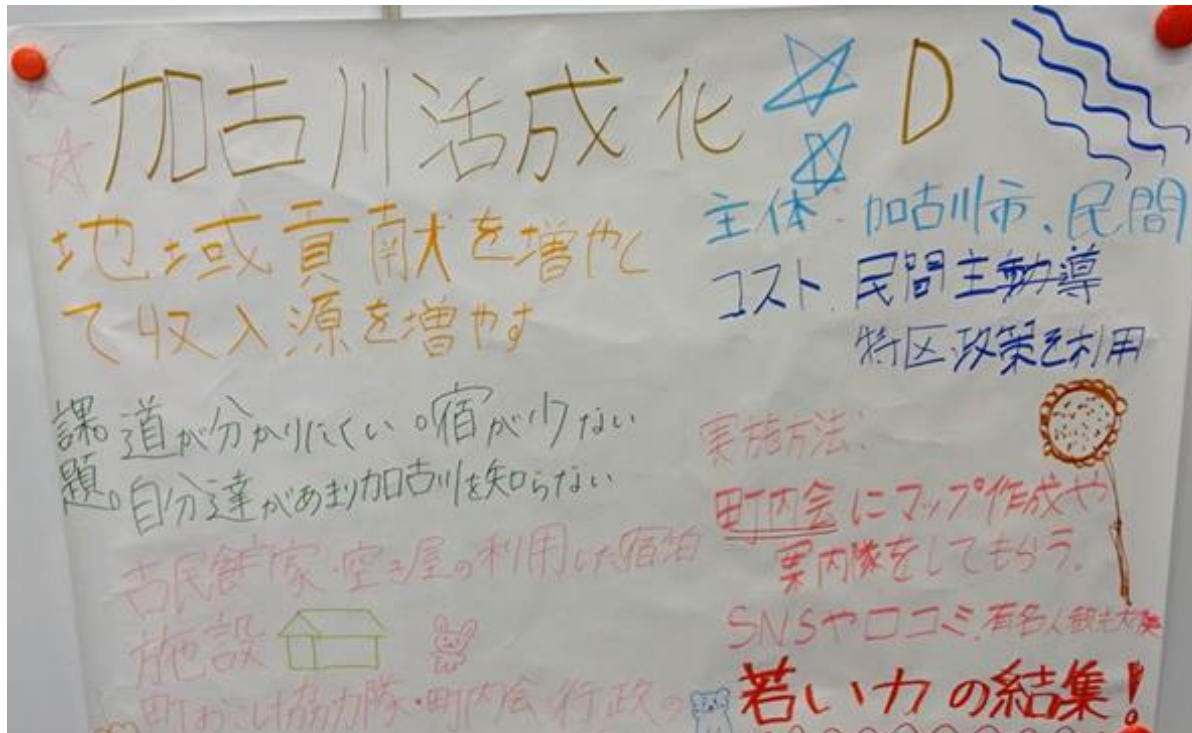 加古川活成化 D
地域貢献を増やし
て収入源を増やす
課題
。道が分かりにくい。宿が少ない
。自分達があまり加古川を知らない
古民家・空き屋の利用した宿泊
施設
町おこし協力隊・町内会・行政の
主体・加古川市、民間
コスト、民間主導
特区政策を利用
実施方法:
町内会にマップ作成や
案内隊をしてもらう。
SNSや口コミ、有名人観光大使
若い力の結集!